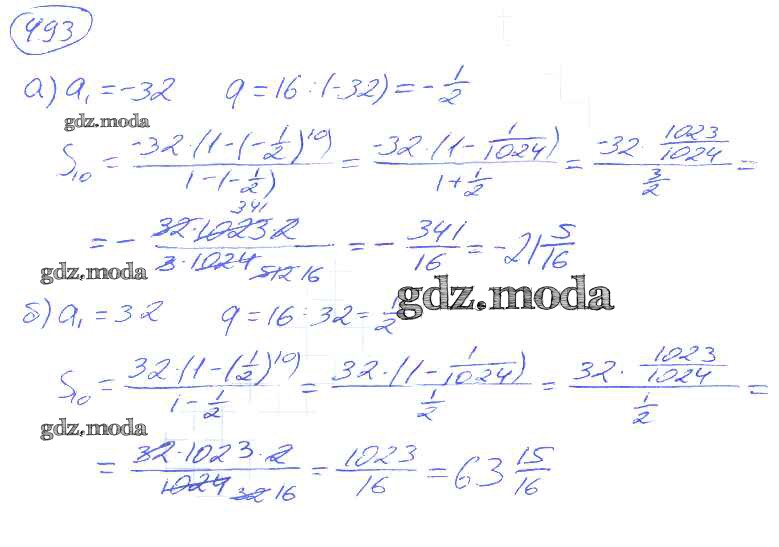 493
а) a₁ = -32 q = 16 : (-32) = -1/2
gdz.moda
S₁₀ = (-32 · (1 - (-1/2)¹⁰)) / (1 - (-1/2)) = (-32 · (1 - 1/1024)) / (1 + 1/2) = (-32 · 1023/1024) / (3/2) =
= - (32 · 1023 341 · 2) / (3 · 1024 512 16) = - 341/16 = -21 5/16
gdz.moda
gdz.moda
б) a₁ = 32 q = 16 : 32 = 1/2
S₁₀ = (32 · (1 - (1/2)¹⁰)) / (1 - 1/2) = (32 · (1 - 1/1024)) / (1/2) = (32 · 1023/1024) / (1/2) =
gdz.moda
= (32 · 1023 · 2) / (1024 32 16) = 1023/16 = 63 15/16